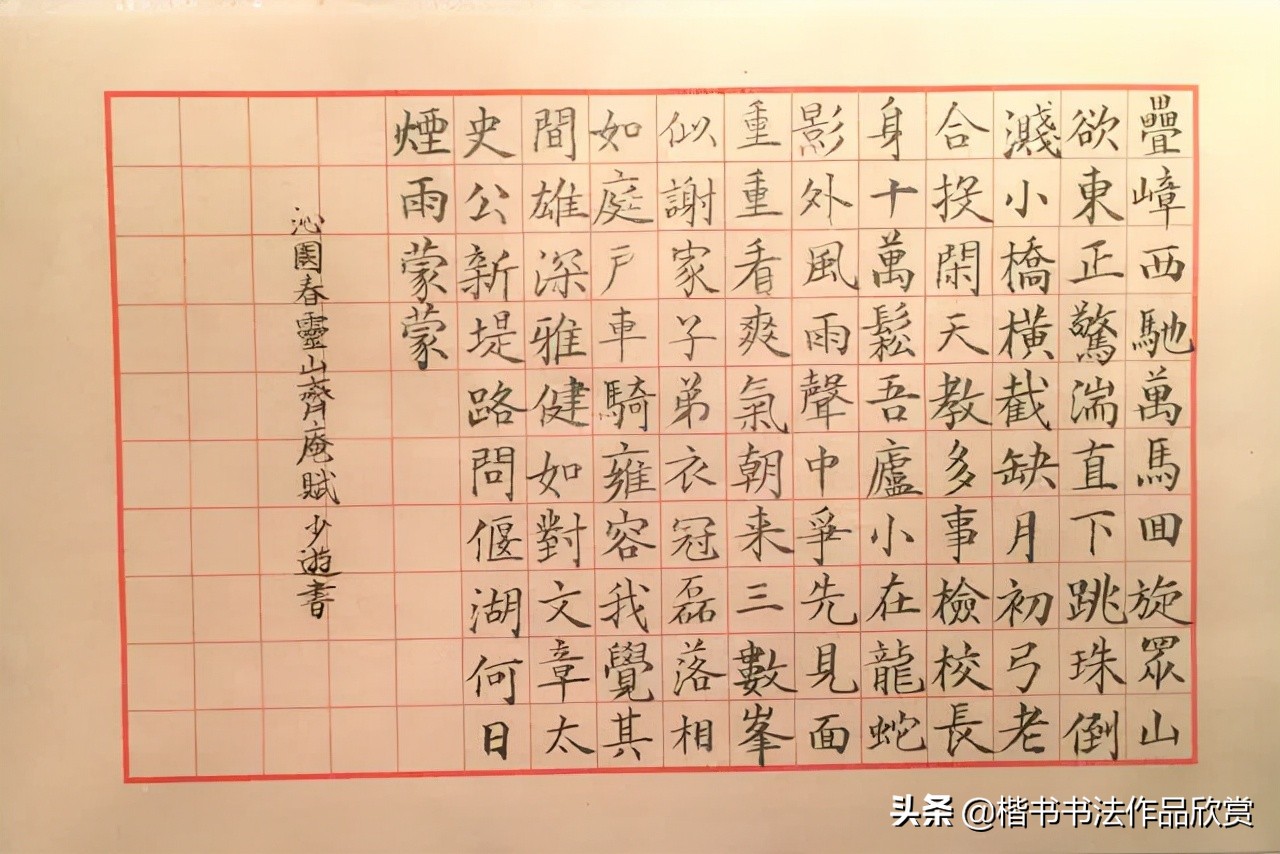 疊嶂西馳萬馬回旋眾山
欲東正驚湍直下跳珠倒
濺小橋橫截缺月初弓老
合投閑天教多事檢校長
身十萬鬆吾廬小在龍蛇
影外風雨聲中爭先見面
重重看爽氣朝来三數峯
似謝家子弟衣冠磊落相
如庭戶車騎雍容我覺其
間雄深雅健如對文章太
史公新堤路問偃湖何日
煙雨蒙蒙
沁園春靈山齊庵賦 少遊書
头条 @楷书书法作品欣赏